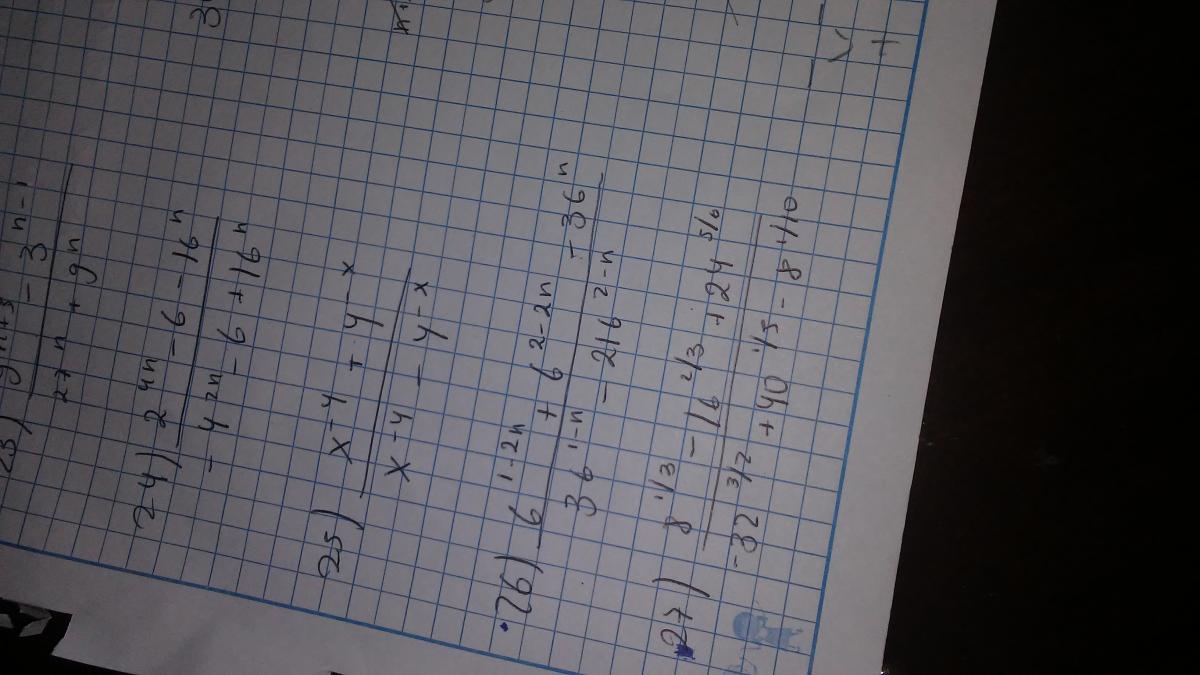 27ⁿ + 9ⁿ
24) 2⁴ⁿ - 6 - 16ⁿ
- 4²ⁿ - 6 + 16ⁿ
25) x⁻ʸ + y⁻ˣ
x⁻ʸ - y⁻ˣ
26) 6¹⁻²ⁿ + 6²⁻²ⁿ - 36ⁿ
36¹⁻ⁿ - 216²⁻ⁿ
27) 8^1/3 - 16^2/3 + 24^5/6
-32^3/2 + 40^1/5 - 8^1/10